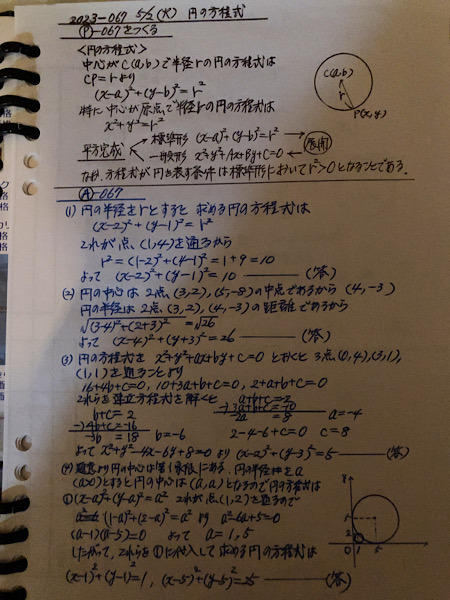 2023-067 5/2(火) 円の方程式
Ⓟ-067をつくる
<円の方程式>
中心がC(a,b)で半径rの円の方程式は
CP=rより
(x-a)²+(y-b)²=r²
特に中心が原点で半径rの円の方程式は
x²+y²=r²
C(a,b)
r
P(x,y)
平方完成
標準形 (x-a)²+(y-b)²=r²
一般形 x²+y²+Ax+By+C=0
展開
なお、方程式が円を表す条件は標準形においてr²>0となることである.
Ⓐ-067
(1) 円の半径をrとすると 求める円の方程式は
(x-2)²+(y-1)²=r²
これが点(1,4)を通るから
r²=(1-2)²+(4-1)²=1+9=10
よって (x-2)²+(y-1)²=10 ―― (答)
(2) 円の中心は 2点(3,2),(5,-8)の中点であるから (4,-3)
円の半径は 2点(3,2),(4,-3)の距離であるから
√(3-4)²+(2+3)²=√26
よって (x-4)²+(y+3)²=26 ―― (答)
(3) 円の方程式を x²+y²+ax+by+c=0 とおくと 3点(0,4),(3,1),
(1,1)を通ることより
16+4b+c=0, 10+3a+b+c=0, 2+a+b+c=0
これらを連立方程式を解くと a+b+c=-2
b+c=2
-)3a+b+c=-10
-2a=8 a=-4
-)4b+c=-16
-3b=18 b=-6
2-4-6+c=0 c=8
よって x²+y²-4x-6y+8=0 より (x-2)²+(y-3)²=5 ―― (答)
(4) 題意より円の中心は第1象限にある. 円の半径をa
(a>0)とすると円の中心は(a,a)となるので円の方程式は
①(x-a)²+(y-a)²=a² これが点(1,2)を通るので
(1-a)²+(2-a)²=a² より a²-6a+5=0
(a-1)(a-5)=0 よって a=1,5
したがって、これらを①に代入して求める円の方程式は
(x-1)²+(y-1)²=1, (x-5)²+(y-5)²=25 ―― (答)
y
5
1
0 1 5 x